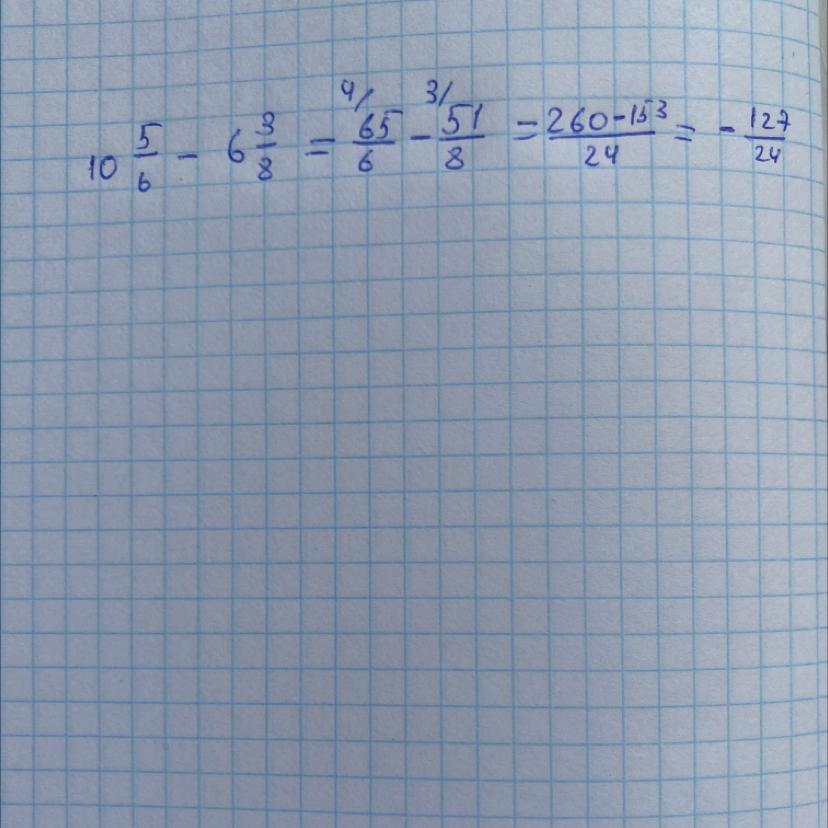 10 5/6 - 6 3/8 = 4/ 65/6 - 3/ 51/8 = 260-153/24 = - 127/24